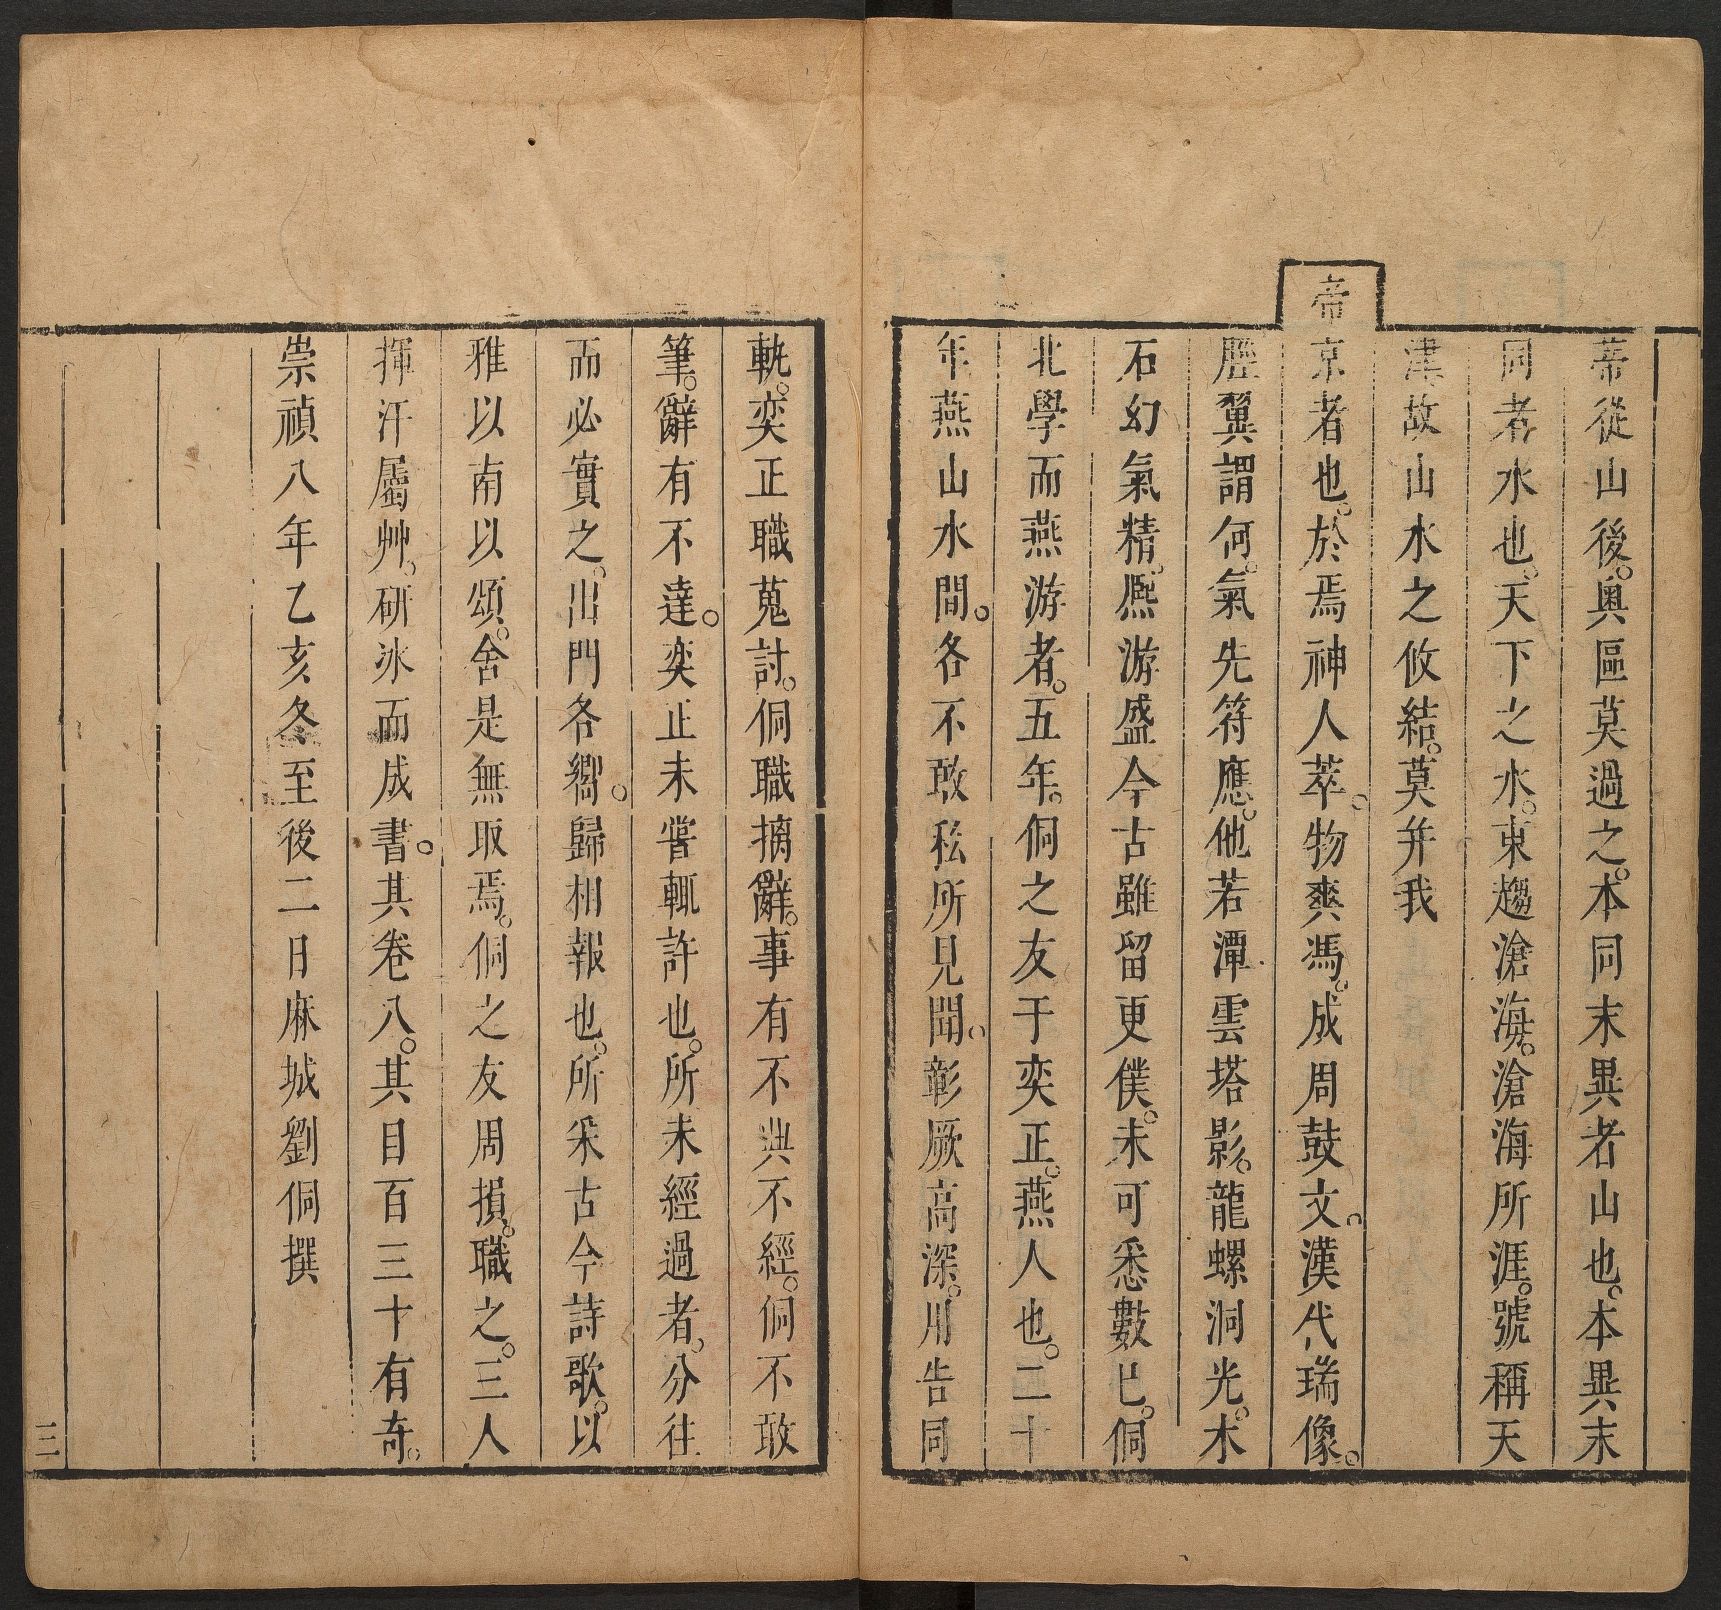 蒂從山後奧區莫過之本同末異者山也本異末
同者水也天下之水東趨滄海滄海所涯號稱天
津故山水之攸結莫并我
帝京者也於焉神人萃物爽馮成周鼓文漢代瑞像
歷翼謂何氣先符應他若潭雲塔影龍螺洞光木
石幻氣精熈游盛今古雖留更僕未可悉數已侗
北學而燕游者五年侗之友于奕正燕人也二十
年燕山水間各不敢私所見聞彰厥高深用告同
軌奕正職蒐討侗職摛辭事有不典不經侗不敢
筆辭有不達奕正未嘗輒許也所未經過者分往
而必實之出門各嚮歸相報也所采古今詩歌以
雅以南以頌舍是無取焉侗之友周損職之三人
揮汗屬艸研冰而成書其卷八其目百三十有奇
崇禎八年乙亥冬至後二日麻城劉侗撰
三